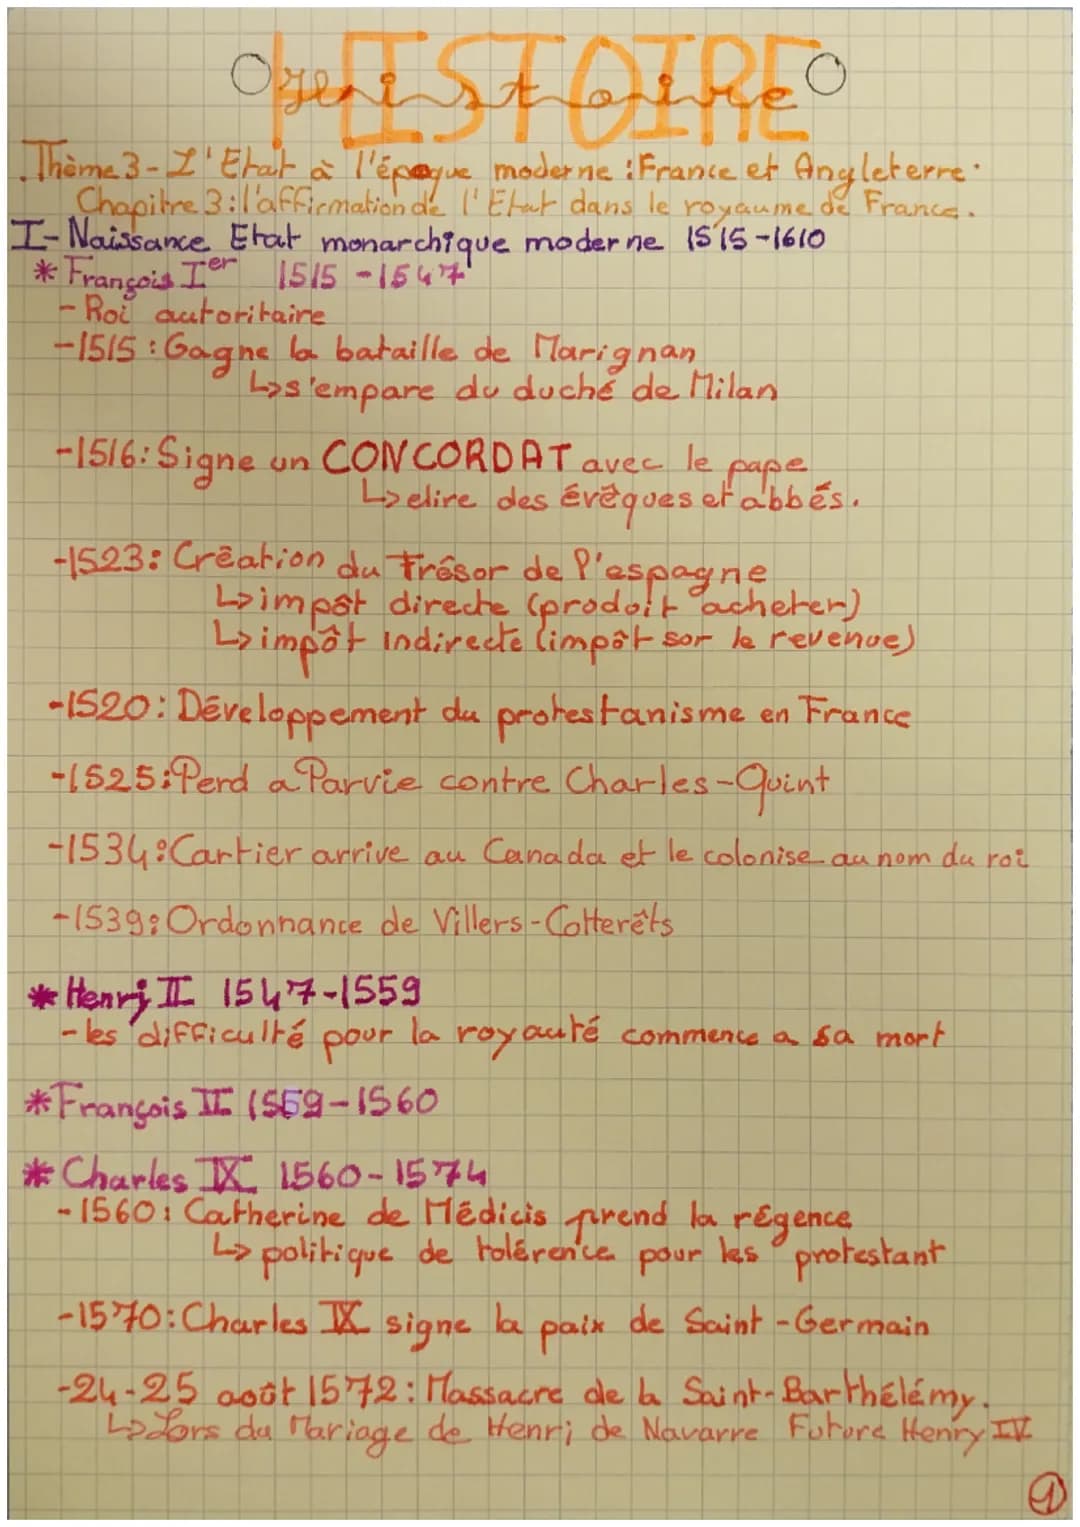 HISTOIRE
Histoire
.Thème 3 - L'Etat à l'époque moderne : France et Angleterre.
Chapitre 3 : l'affirmation de l'Etat dans le royaume de France.
I- Naissance Etat monarchique moderne 1515-1610
* François Ier 1515-1547
- Roi autoritaire
-1515 : Gagne la bataille de Marignan
↳s'empare du duché de Milan
-1516: Signe un CONCORDAT avec le pape
↳elire des évêques et abbés.
-1523: Création du Trésor de l'espagne
↳impôt directe (prodoit acheter)
↳impôt indirecte (impôt sor le revenue)
-1520: Développement du protestanisme en France
-1525: Perd a Parvie contre Charles-Quint
-1534: Cartier arrive au Canada et le colonise au nom du roi
-1539: Ordonnance de Villers-Cotterêts
* Henri II 1547-1559
- les difficulté pour la royauté commence a sa mort
* François II 1559-1560
* Charles IX 1560-1574
-1560: Catherine de Médicis prend la régence
↳ politique de tolérence pour les protestant
-1570: Charles IX signe la paix de Saint-Germain
-24-25 août 1572: Massacre de la Saint-Barthélémy.
↳Lors du Mariage de Henri de Navarre Future Henry IV
1